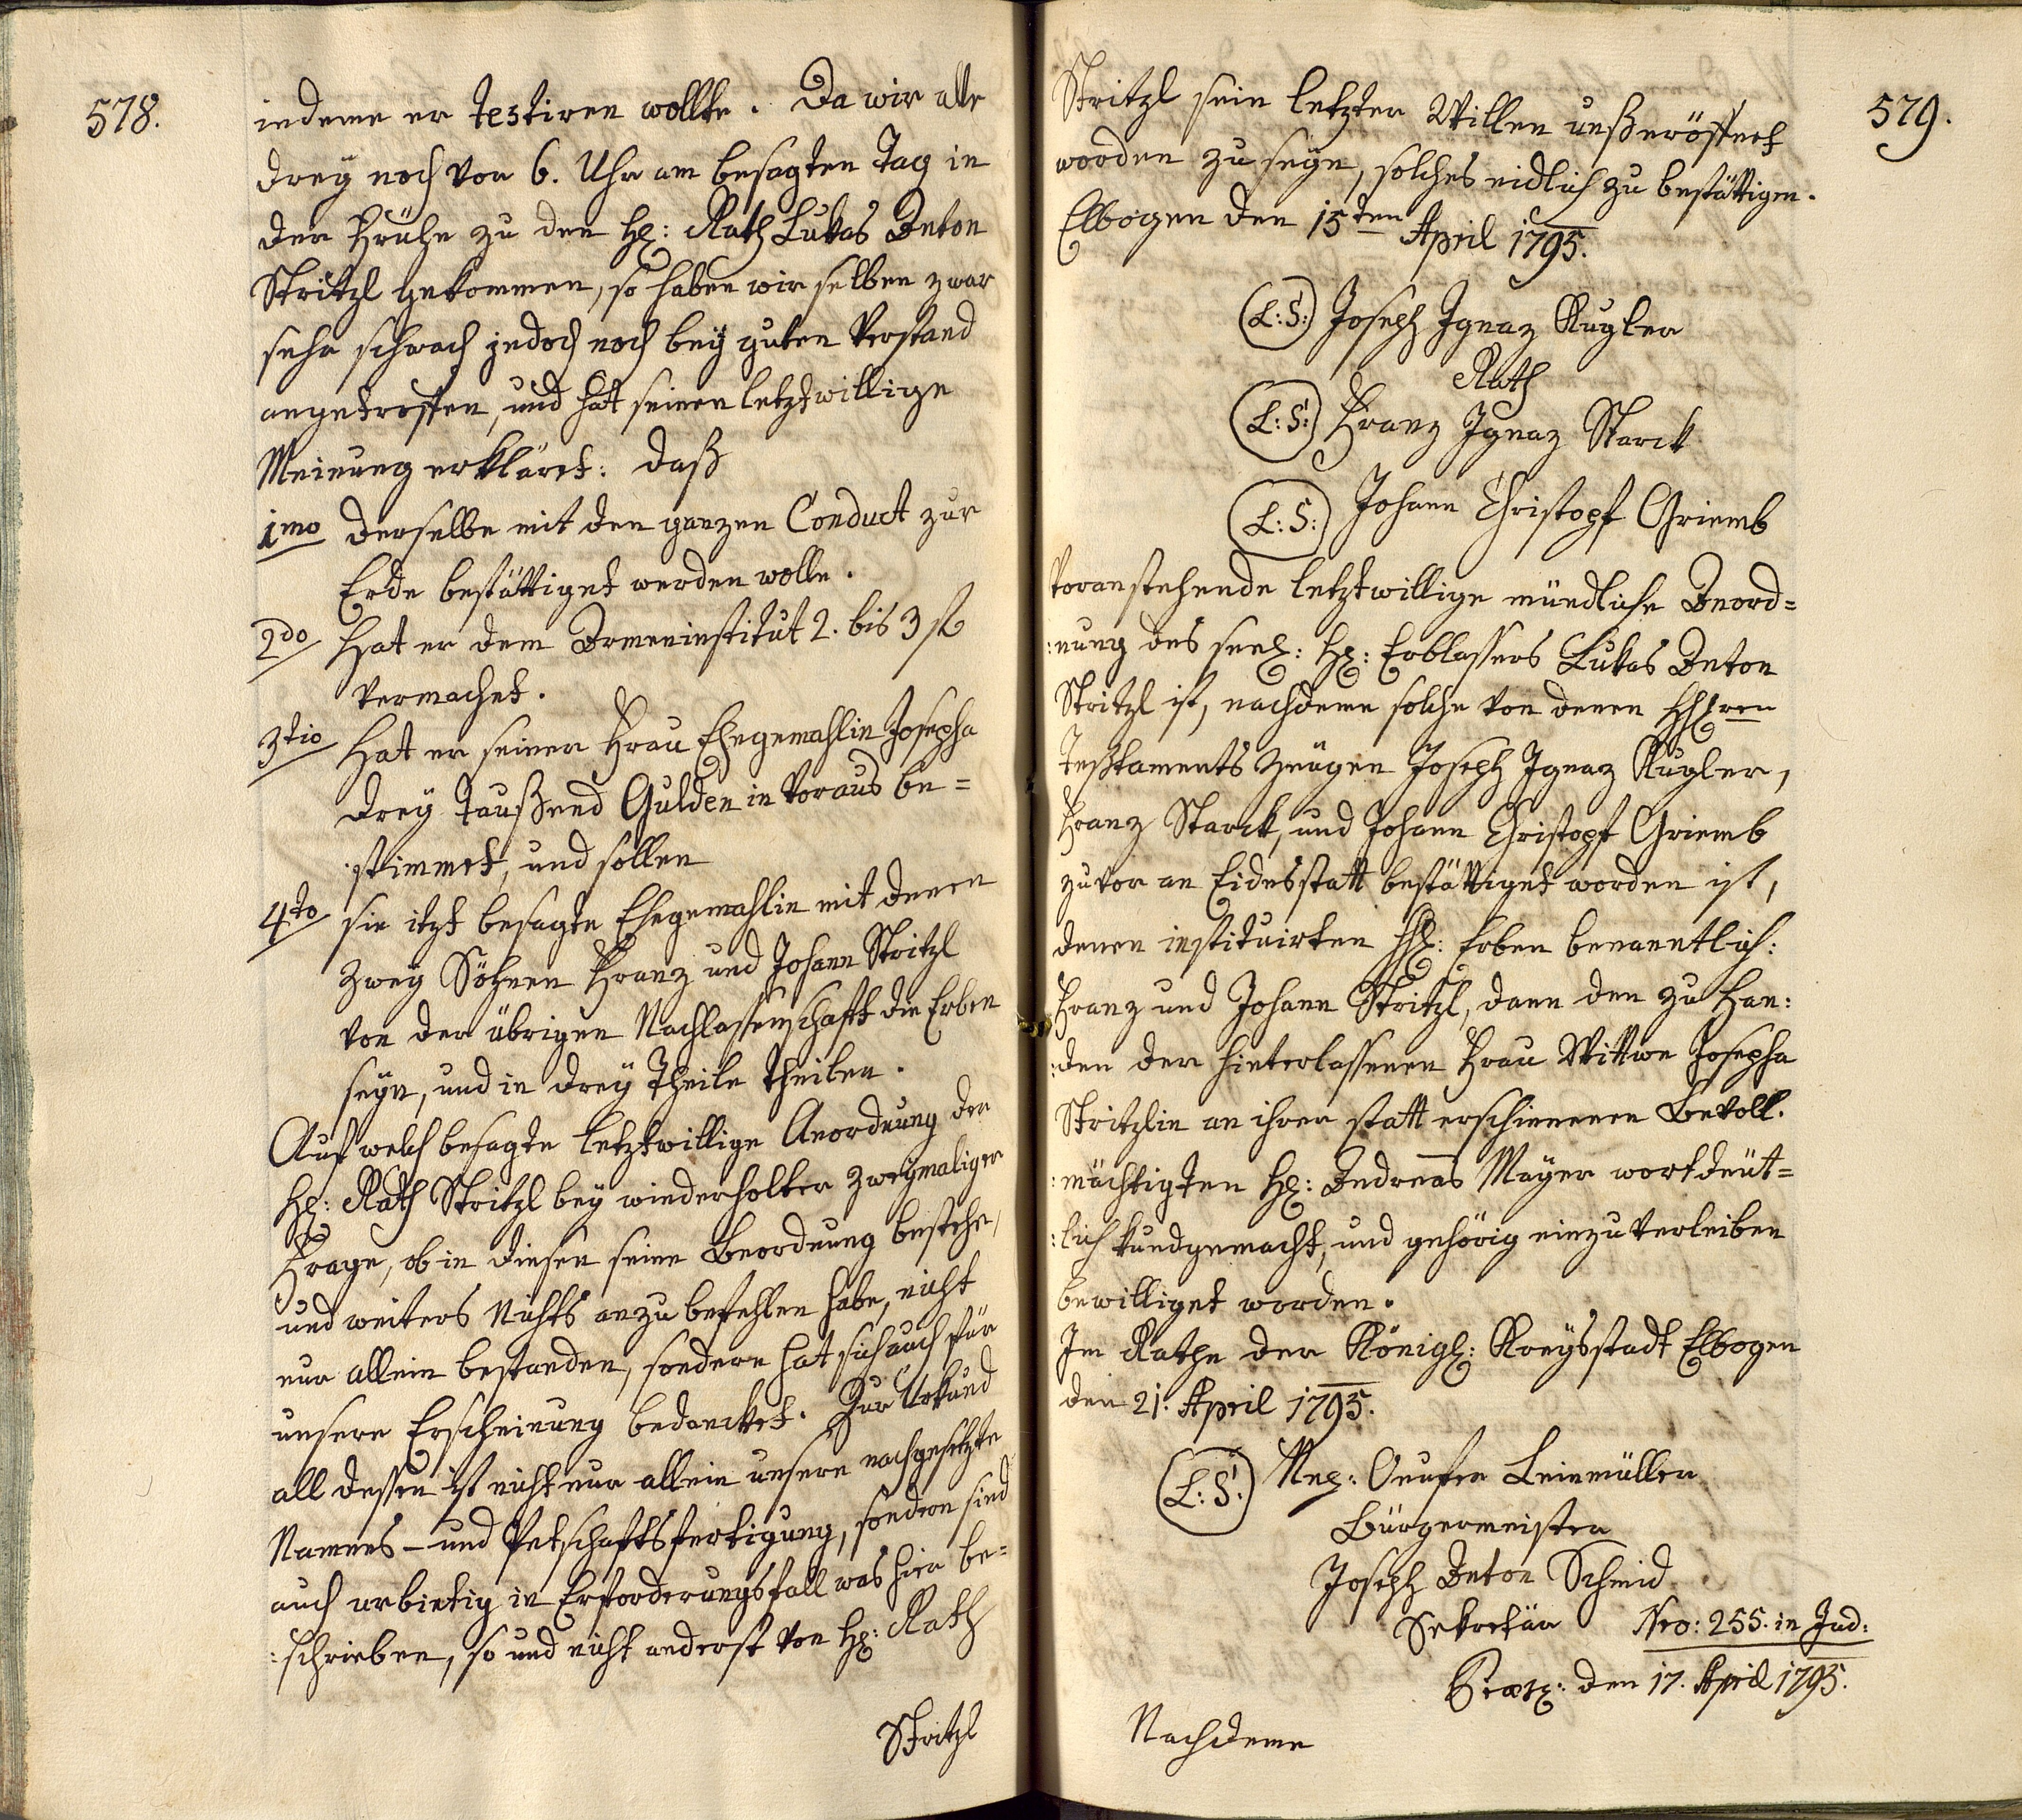 578.
indeme er testiren wollte. Da wir alle
drey noch vor 6. Uhr am besagten Tag in
der Frühe zu den H: Rath Lukas Anton
Stritzl gekommen, so haben wir selben zwar
sehr schwach jedoch noch bey guten Verstand
angetroffen, und hat seinen letztwillige
Meinung erkläret: daß
1mo derselbe mit den ganzen Conduct zur
Erde bestättiget werden wolle.
2do Hat er dem Armeninstitut 2. bis 3 f
vermachet.
3tio Hat er seiner Frau Ehegemahlin Josepha
drey Taußend Gulden in Voraus be=
:stimmet, und sollen
4to sie itzt besagte Ehegemahlin mit denen
zwey Söhnen Franz und Johann Stritzl
von der übrigen Nachlassenschaft die Erben
seyn, und in drey Theile theilen.
Auf welch besagte letztwillige Anordnung der
H: Rath Stritzl bey wiederholter zweymaliger
Frage, ob in diesen seine Anordnung bestehe,
und weiters Nichts anzubefehlen habe, nicht
nur allein bestanden, sondern hat sich auch für
unsere Erscheinung bedancket. Zur Urkund
all dessen ist nicht nur allein unsere nachgesetzte
Namens- und Petschaftsfertigung, sondern sind
auch urbietig in Erforderungsfall was hier be=
:schrieben, so und nicht anderst von H: Rath
Stritzl
579.
Stritzl sein letzter Willen unß eröffnet
worden zu seyn, solches eidlich zu bestättigen.
Elbogen den 15ten April 1795.
(L:S:) Joseph Ignaz Kugler
Rath
(L:S:) Franz Ignaz Starck
(L:S:) Johann Christoph Griemb
Voranstehende letztwillige mündliche Anord=
:nung des seel: H: Erblassers Lukas Anton
Stritzl ist, nachdeme solche von denen HHren
Testaments Zeugen Joseph Ignaz Kugler,
Franz Starck, und Johann Christoph Griemb
zuvor an Eidesstatt bestättiget worden ist,
denen instituirten HH: Erben benanntlich:
Franz und Johann Stritzl, dann den zu Han:
:den der hinterlassenen Frau Wittwe Josepha
Stritzlin an ihrer statt erschienenen Bevoll.
:mächtigten H: Andreas Mayer wortdeüt=
:lich kundgemacht, und gehörig einzuverleiben
bewilliget worden.
Im Rathe der Königl: Kreysstadt Elbogen
den 21. April 1795.
(L:S:) Leinmüller
Bürgermeister
Joseph Anton Schmid
Sekretär Nro: 255. in Jud:
den 17. April 1795.
Nachdeme